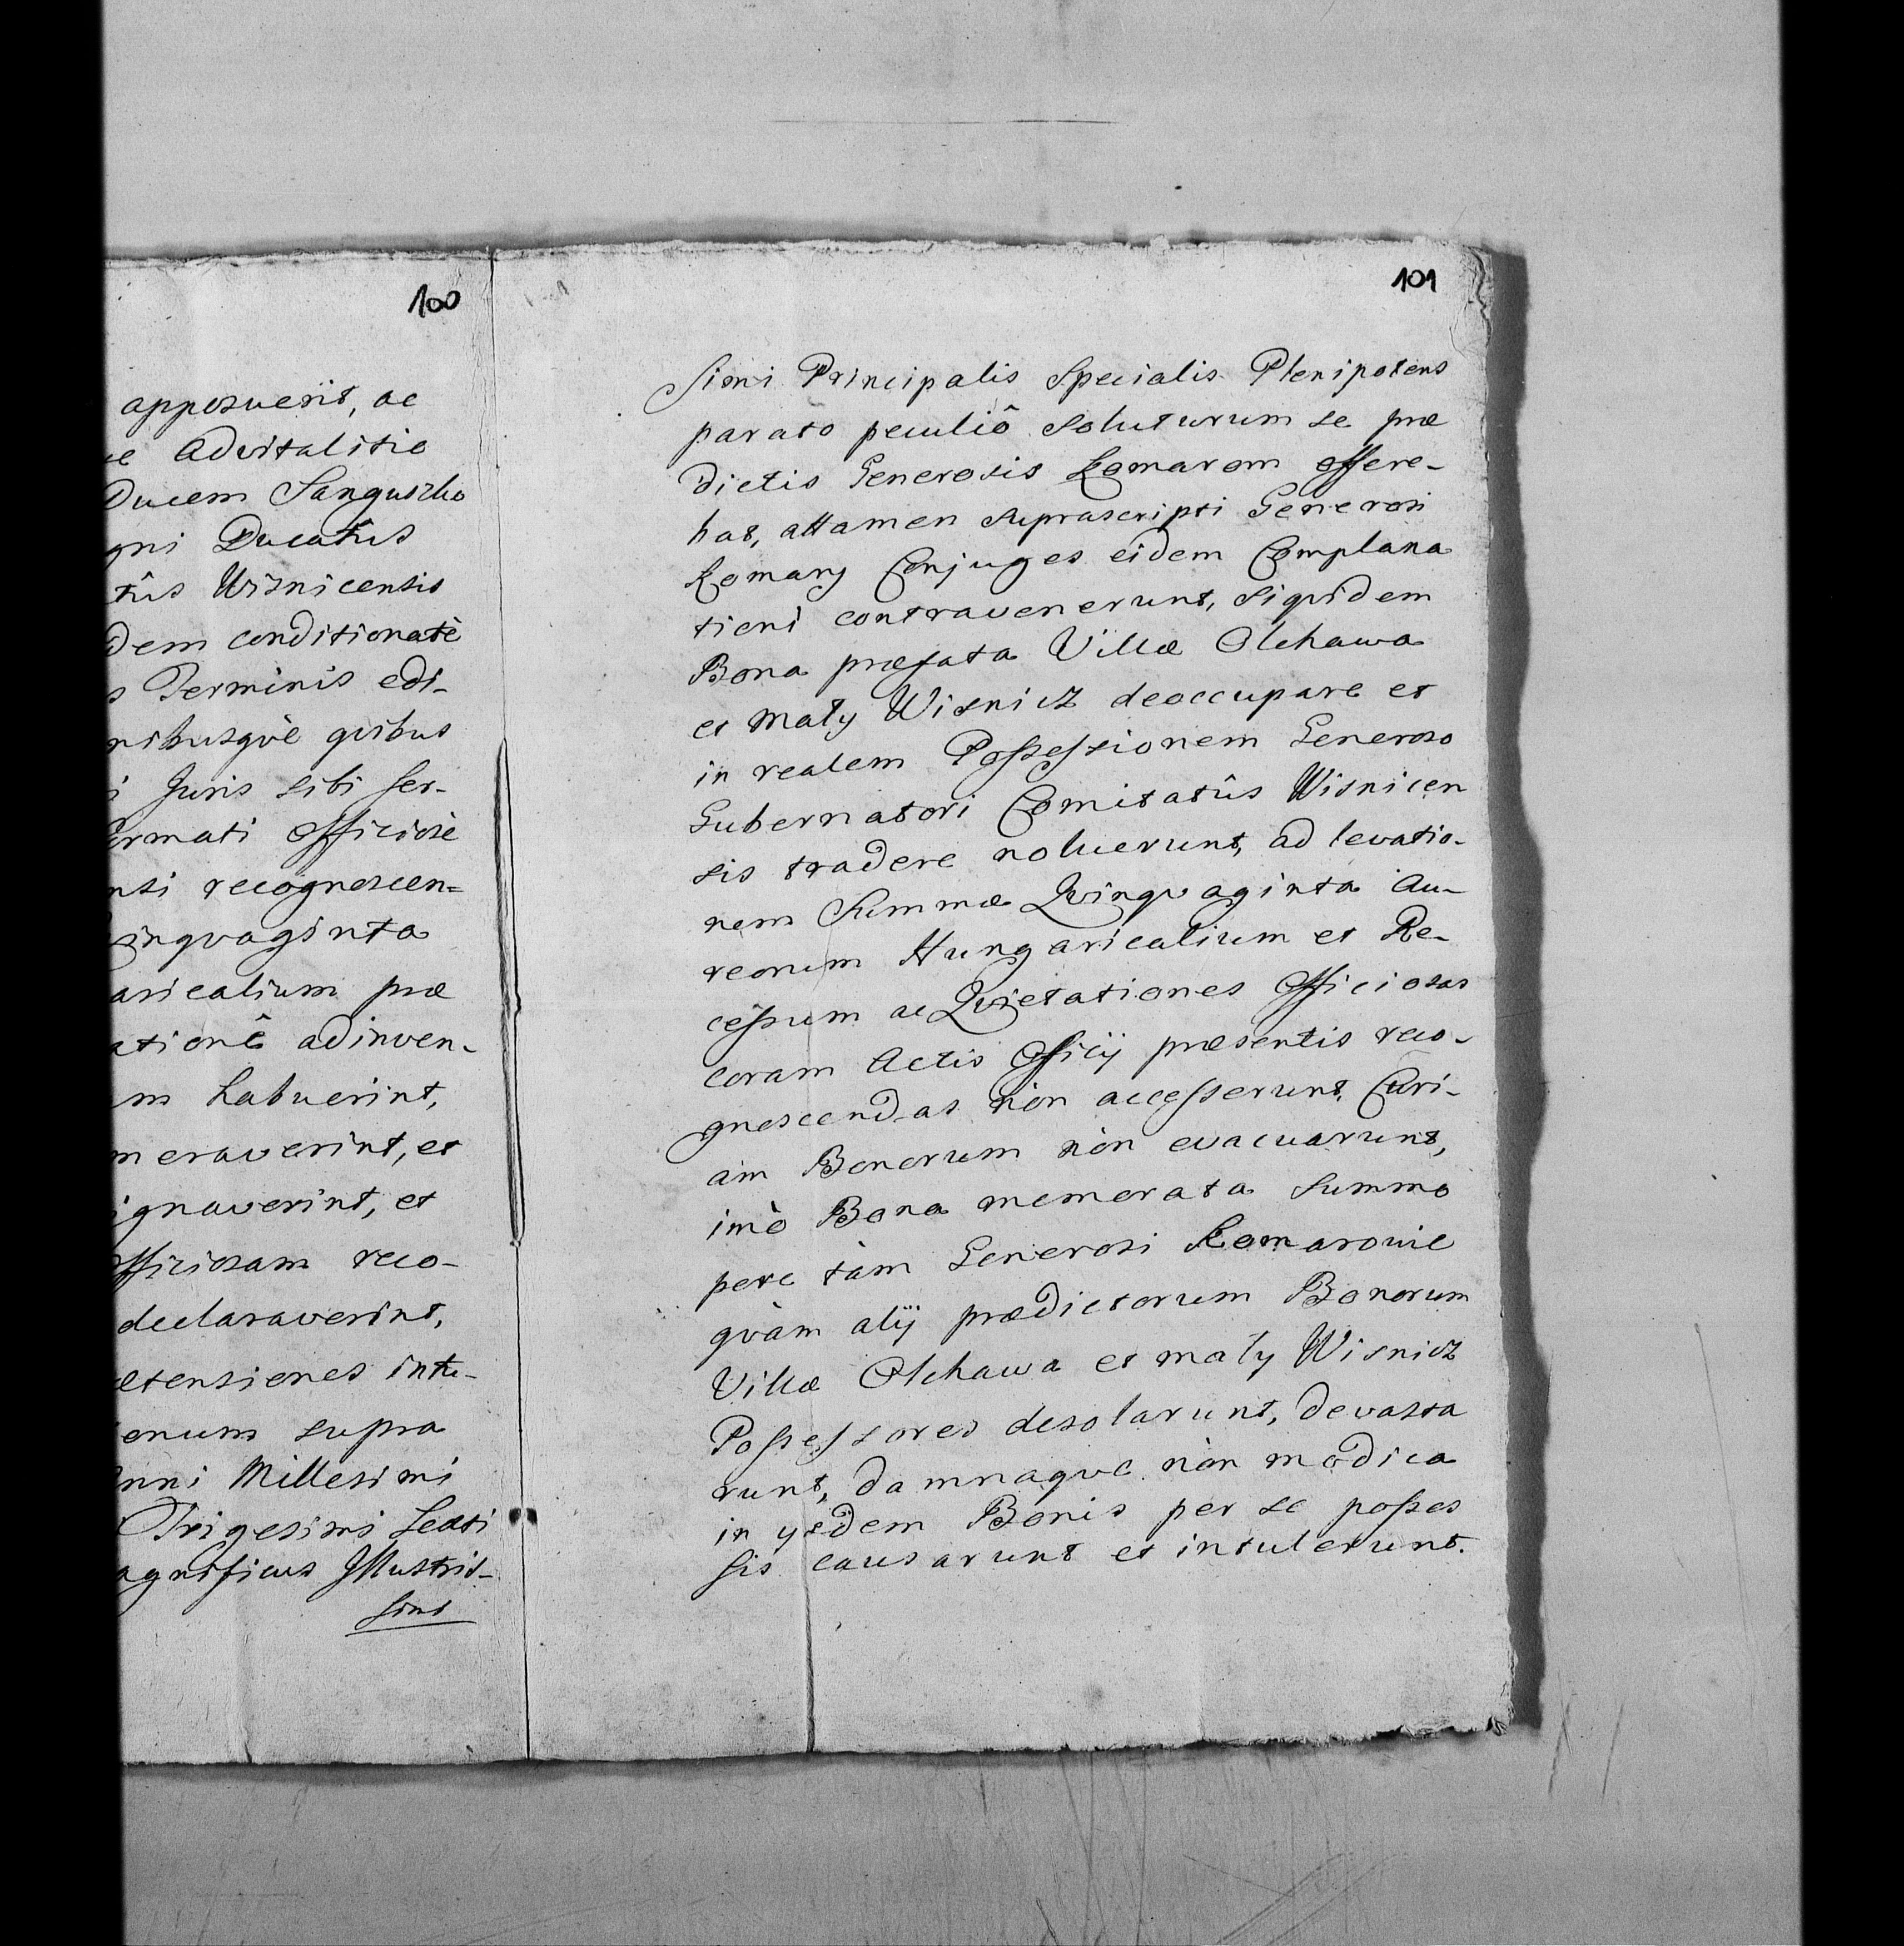 100
apposuerit, ac
Advitalitio
Ducem Sanguszko
Ducatûs
Wisnicensis
conditionatè
Terminis edi-
quibus
Juris sibi ser-
officiosè
recognoscen=
præ
adinven-
habuerint,
et
et
reco-
declaraverint,
intu-
supra
Millesimi
Trigesimi Sexti
Illustris-
simi
101
simi Principalis Specialis Plenipotens
parato peculiô soluturum se præ
dictis Generosis Komarom offere-
bat, attamen supra scripti Generosi
Komary Conjuges eidem Complana
tioni contravenerunt, siquidem
Bona præfata Villæ Olchawa
et Mały Wisnicz deoccupare et
in realem Possessionem Generoso
Gubernatori Comitatûs Wisnicen
sis tradere noluerunt, ad levatio-
nem Summæ Quinquaginta Au-
reorum Hungaricalium et Re-
cessum ac Quietationes officiosas
coram Actis Officij præsentis reco-
gnoscendas nòn accesserunt, Curi-
am Bonorum nòn evacuarunt,
imò Bona memorata summo
pere tàm Generosi Komarowie
quàm alij prædictorum Bonorum
Villæ Olchawa et mały Wisnicz
Possessores desolarunt, devasta
runt, damnaque nòn modica
in ysdem Bonis per se posses
sis causarunt et intulerunt.